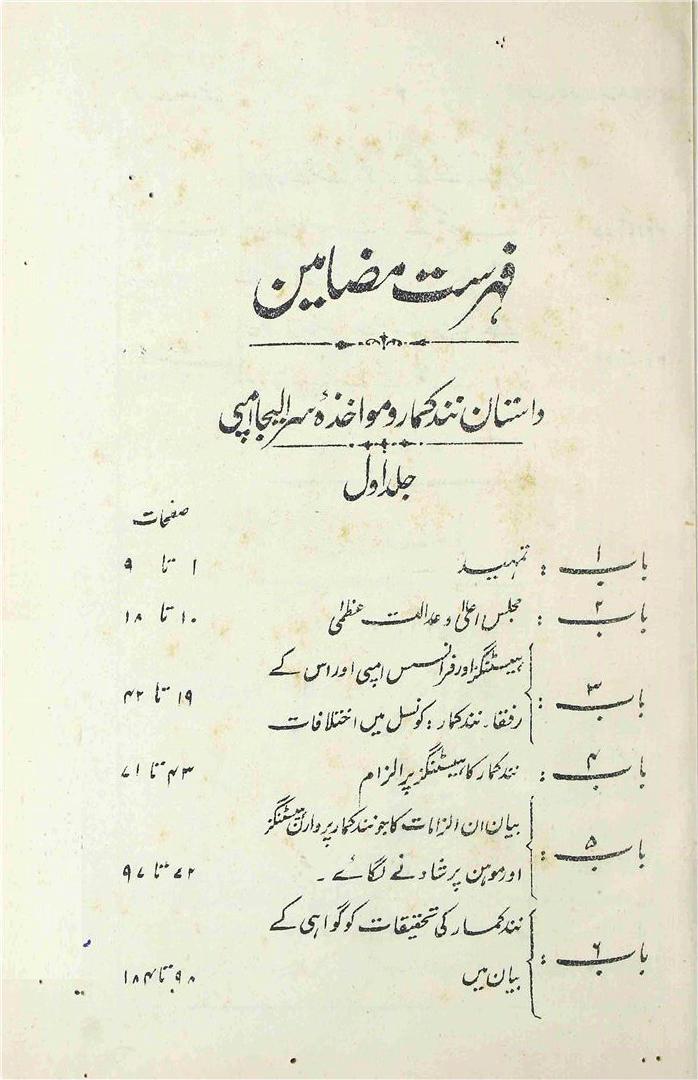 فہرست مضامین
داستان نندکمار و مواخذۂ سر الیجا امپی
جلد اول
صفحات
باب ۱ : تمہید ۱ تا ۹
باب ۲ : مجلس اعلیٰ و عدالت عظمیٰ ۱۰ تا ۱۸
باب ۳ : ہیسٹنگز اور فرانسس امپی اور اس کے
رفقا۔ نندکمار : کونسل میں اختلافات ۱۹ تا ۴۲
باب ۴ : نندکمار کا ہیسٹنگز پر الزام ۴۳ تا ۷۱
باب ۵ : بیان ان الزامات کا جو نندکمار پر وارن ہیسٹنگز
اور موہن پرشاد نے لگائے۔ ۷۲ تا ۹۷
باب ۶ : نندکمار کی تحقیقات کو گواہی کے
بیان میں ۹۸ تا ۱۸۴